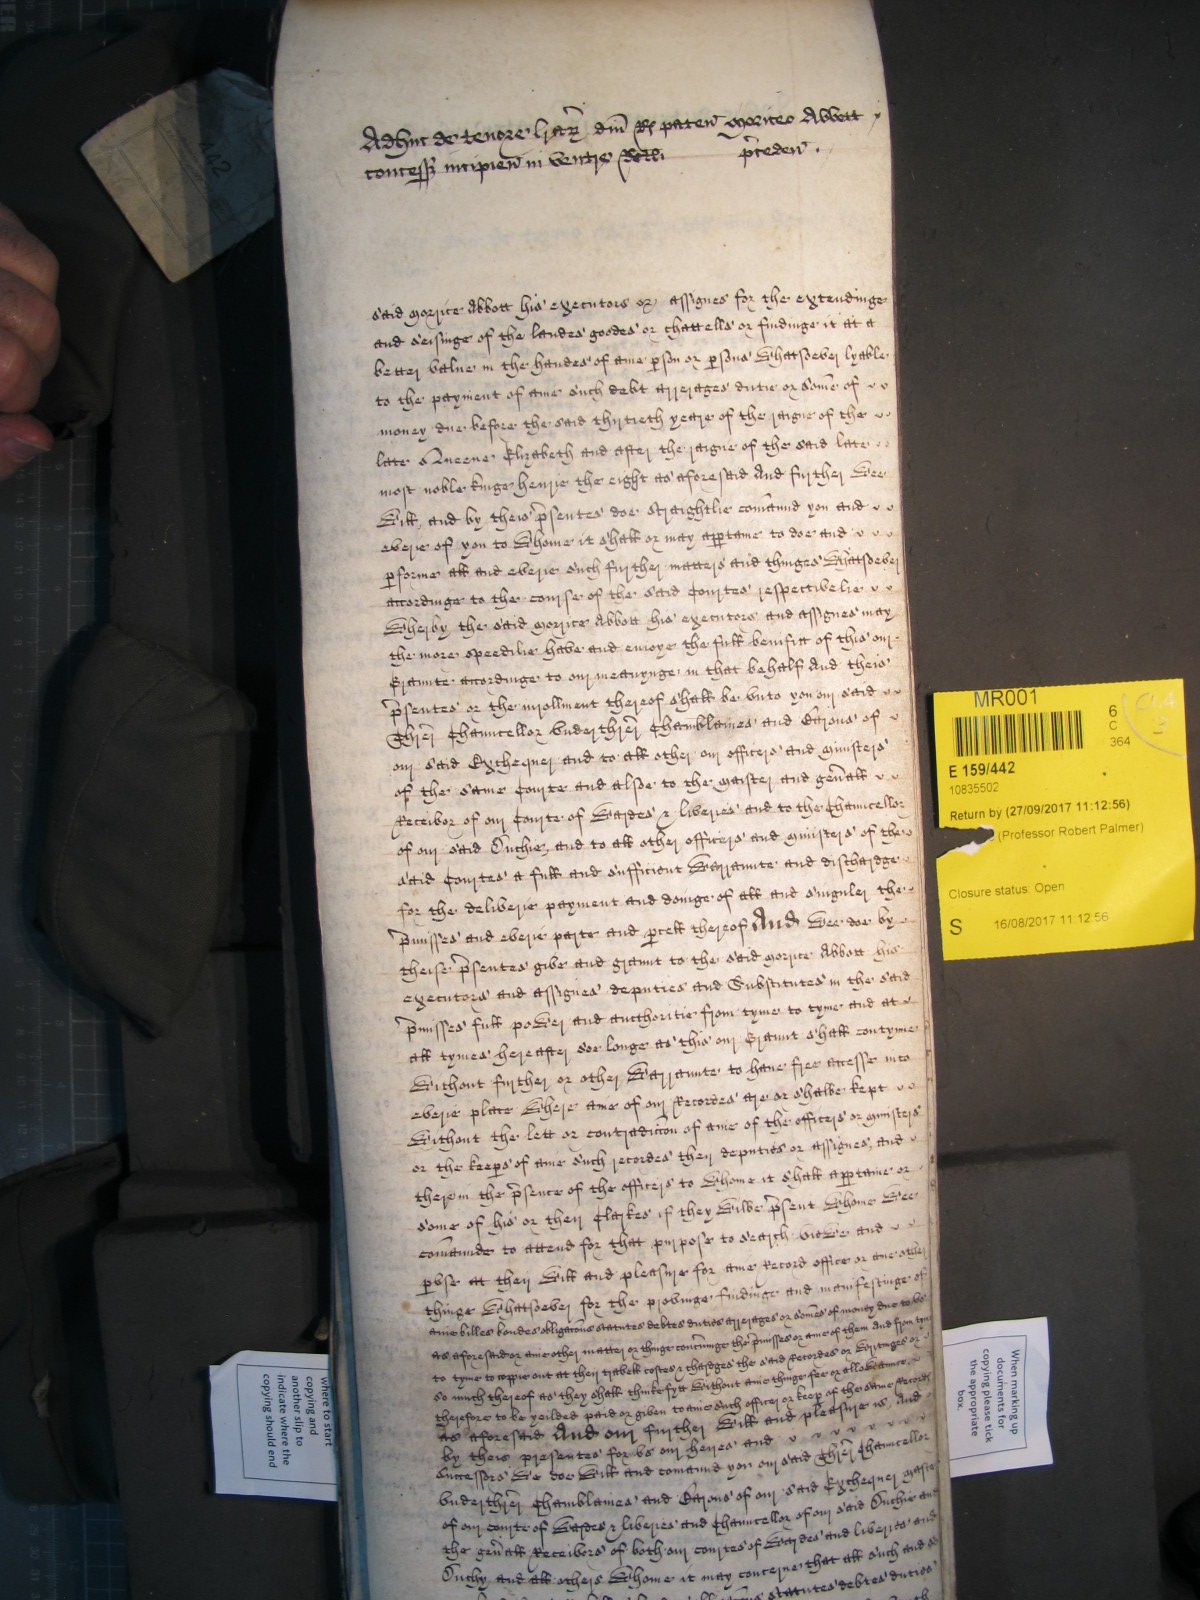 Adhuc de tenore lrarz dni Rs paten Morice Abbott
concess incipien in ventre Rotli preceden .
said Morrice Abbott his executors or assignes for the extendinge
and seisinge of the landes goodes or chattells or findinge it at a
better value in the handes of anie pson or psons whatsoever lyable
to the payment of anie such debt arrerages dutie or some of
money due before the said thirtieth yeare of the raigne of the
late Queene Elizabeth and after the raigne of the said late
most noble kinge henrie the eight as aforesaid And further wee
will and by theis psentes doe straightlie comaund you and
everie of you to whome it shall or may apptaine to doe and
pforme all and everie such further matters and thinges whatsoever
accordinge to the course of the said Courtes respectivelie
wherby the said Morrice Abbott his executors and assignes may
the more speedilie have and enioye the full benifitt of this our
Graunte accordinge to our meanynge in that behalf And theis
psentes or the inrollment thereof shall be unto you our said
Threr Chauncellor Underthrer Chamblaines and Barons of
our said Exchequer and to all other our officers and Ministers
of the same Courte and alsoe to the Maister and genall
Receivor of our Courte of Wardes & liveries and to the Chauncellor
of our said Duchie, and to all other officers and Ministers of the
said Courtes a full and sufficient Warraunte and dischardge
for the deliverie payment and doinge of all and singuler the
pmisses and everie parte and pcell thereof And wee doe by
theise psentes give and graunt to the said Morrice Abbott his
executors and assignes deputies and Substitutes in the said
pmisses full power and authoritie from tyme to tyme and at
all tymes hereafter soe longe as this our Graunt shall contynue
without further or other Warraunte to have free accesse into
everie place where anie of our Recordes are or shalbe kept
without the lett or contradiccon of anie of the officers or Ministers
or the keeps of anie such recordes their deputies or assignes, and
therein the psence of the officers to whome it shall apptaine or
some of his or their Clarkes if they wilbe psent whome wee
comaunde to attend for that purpose to search viewe and
pvse at their will and pleasure for anie Record office or anie other
thinge whatsoever for the provinge findinge and manifestinge of
anie billes bondes obligacons statutes debtes duties arrerages or somes of money due to us
as aforesaid or anie other matter or thinge concerninge the pmisses or anie of them and from tyme
to tyme to coppie out at their travell costes & chardges the said Recordes or writinges or
so much thereof as they shall thinke fytt without anie thinge fee or allowance,
therefore to be yeilded paid or given to anie such officer or keep of the same Recordes
as aforesaid And our further will and pleasure is, And
by theis presentes for us our heires and
Successors we doe will and comaund you our said Threr Chauncellor
Underthrer Chamblaines and Barons of our said Exchequer Maister
of our courte of Wardes & liveries and Chauncellor of our said Duchie and
the genall Receivors of both our courtes of Wardes and liveries and
Duchy and all others whome it may concerne that all such and
statutes debtes duties
442
MR001
6
C
364
E 159/442
10835502
Return by (27/09/2017 11:12:56)
(Professor Robert Palmer)
Closure status: Open
S 16/08/2017 11:12:56
where to start
copying and
another slip to
indicate where the
copying should end
When marking up
documents for
copying please tick
the appropriate
box.